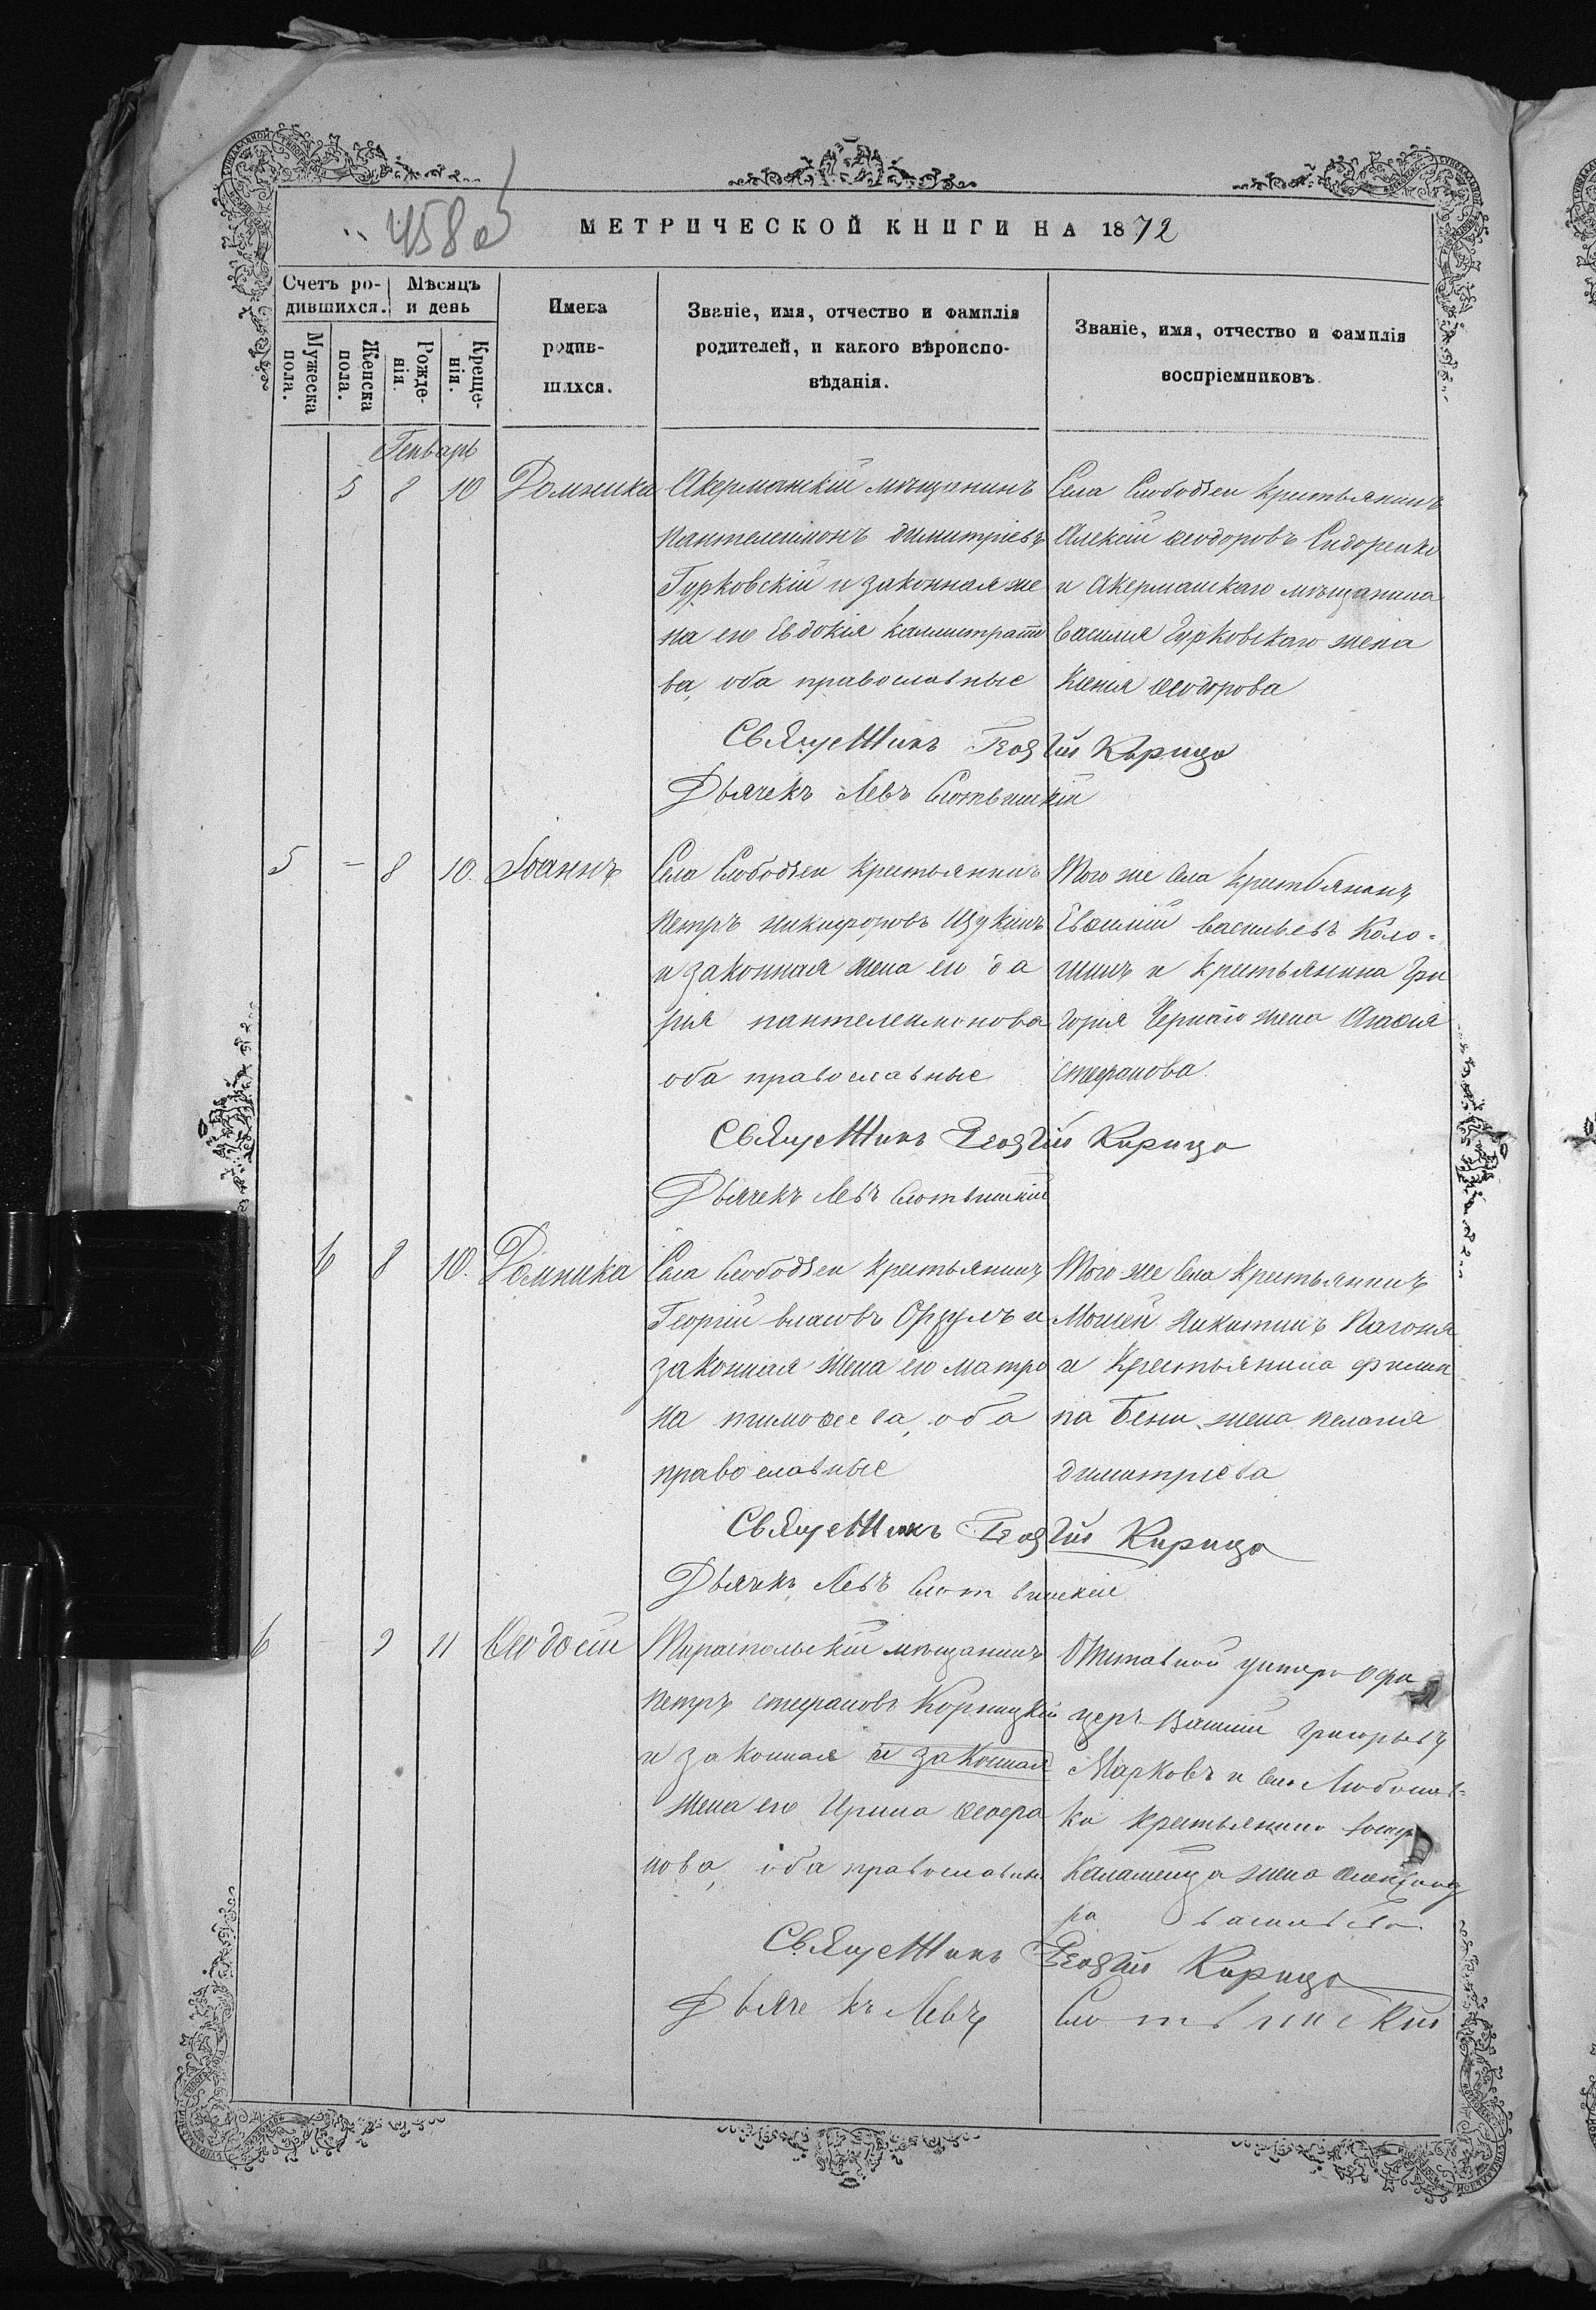 458 об
МЕТРИЧЕСКОЙ КНИГИ НА 1872
Счетъ ро-
дившихся.
Мѣсяцъ
и день
Имена
родив-
шихся.
Званіе, имя, отчество и фамилія
родителей, и какого вѣроиспо-
вѣданія.
Званіе, имя, отчество и фамилія
воспріемниковъ.
Мужеска
пола.
Женска
пола.
Рожде-
нія.
Креще-
нія.
Генварь
5 8 10 Домника
Акерманскій мѣщанинъ
Пантелеимонъ димитріевъ
Гурковскій и законная же
на его Евдокія Каллистрато
ва, оба православные
Села Слободзеи крестьянинъ
Алексій Ѳеодоровъ Сидоренко
и Акерманскаго мѣщанина
Василія Гурковскаго жена
Ксенія Ѳеодорова
Священникъ Георгій Кирица
Дьячекъ Левъ Слотвинскій
5 - 8 10. Іоаннъ
Села Слободзеи Крестьянинъ
Петръ никифоровъ Щукинъ
и законная жена его да
рія пантелеимонова
оба православные
Того же села Крестьянинъ
Евѳимій васильевъ Коло-
и Крестьянина Гри
горія Чернаго жена Агаѳія
стефанова.
Священникъ Георгій Кирица
Дьячекъ Левъ Слотвинскій
6 8 10. Домника
Села Слободзеи крестьянинъ
Георгій власовъ и
законная жена его матро
на тимоѳеева, оба
православные
Того же села крестьянинъ
Моисей Никитинъ
и Крестьянина Филип
па жена пелагія
димитріева
Священникъ Георгій Кирица
Дьячекъ Левъ Слотвинскій
6 9 11 Ѳеодосій
Тираспольскій мѣщанинъ
Петръ стефановъ Корницкій
и законная и законная
жена его Ирина
нова, оба православные
Отставной унтеръ-офи
церъ Василій григорьевъ
Марковъ и села
ка крестьянина
жена Александ
ра васильева
Священникъ Георгій Кирица
Дьячекъ Левъ Слотвинскій